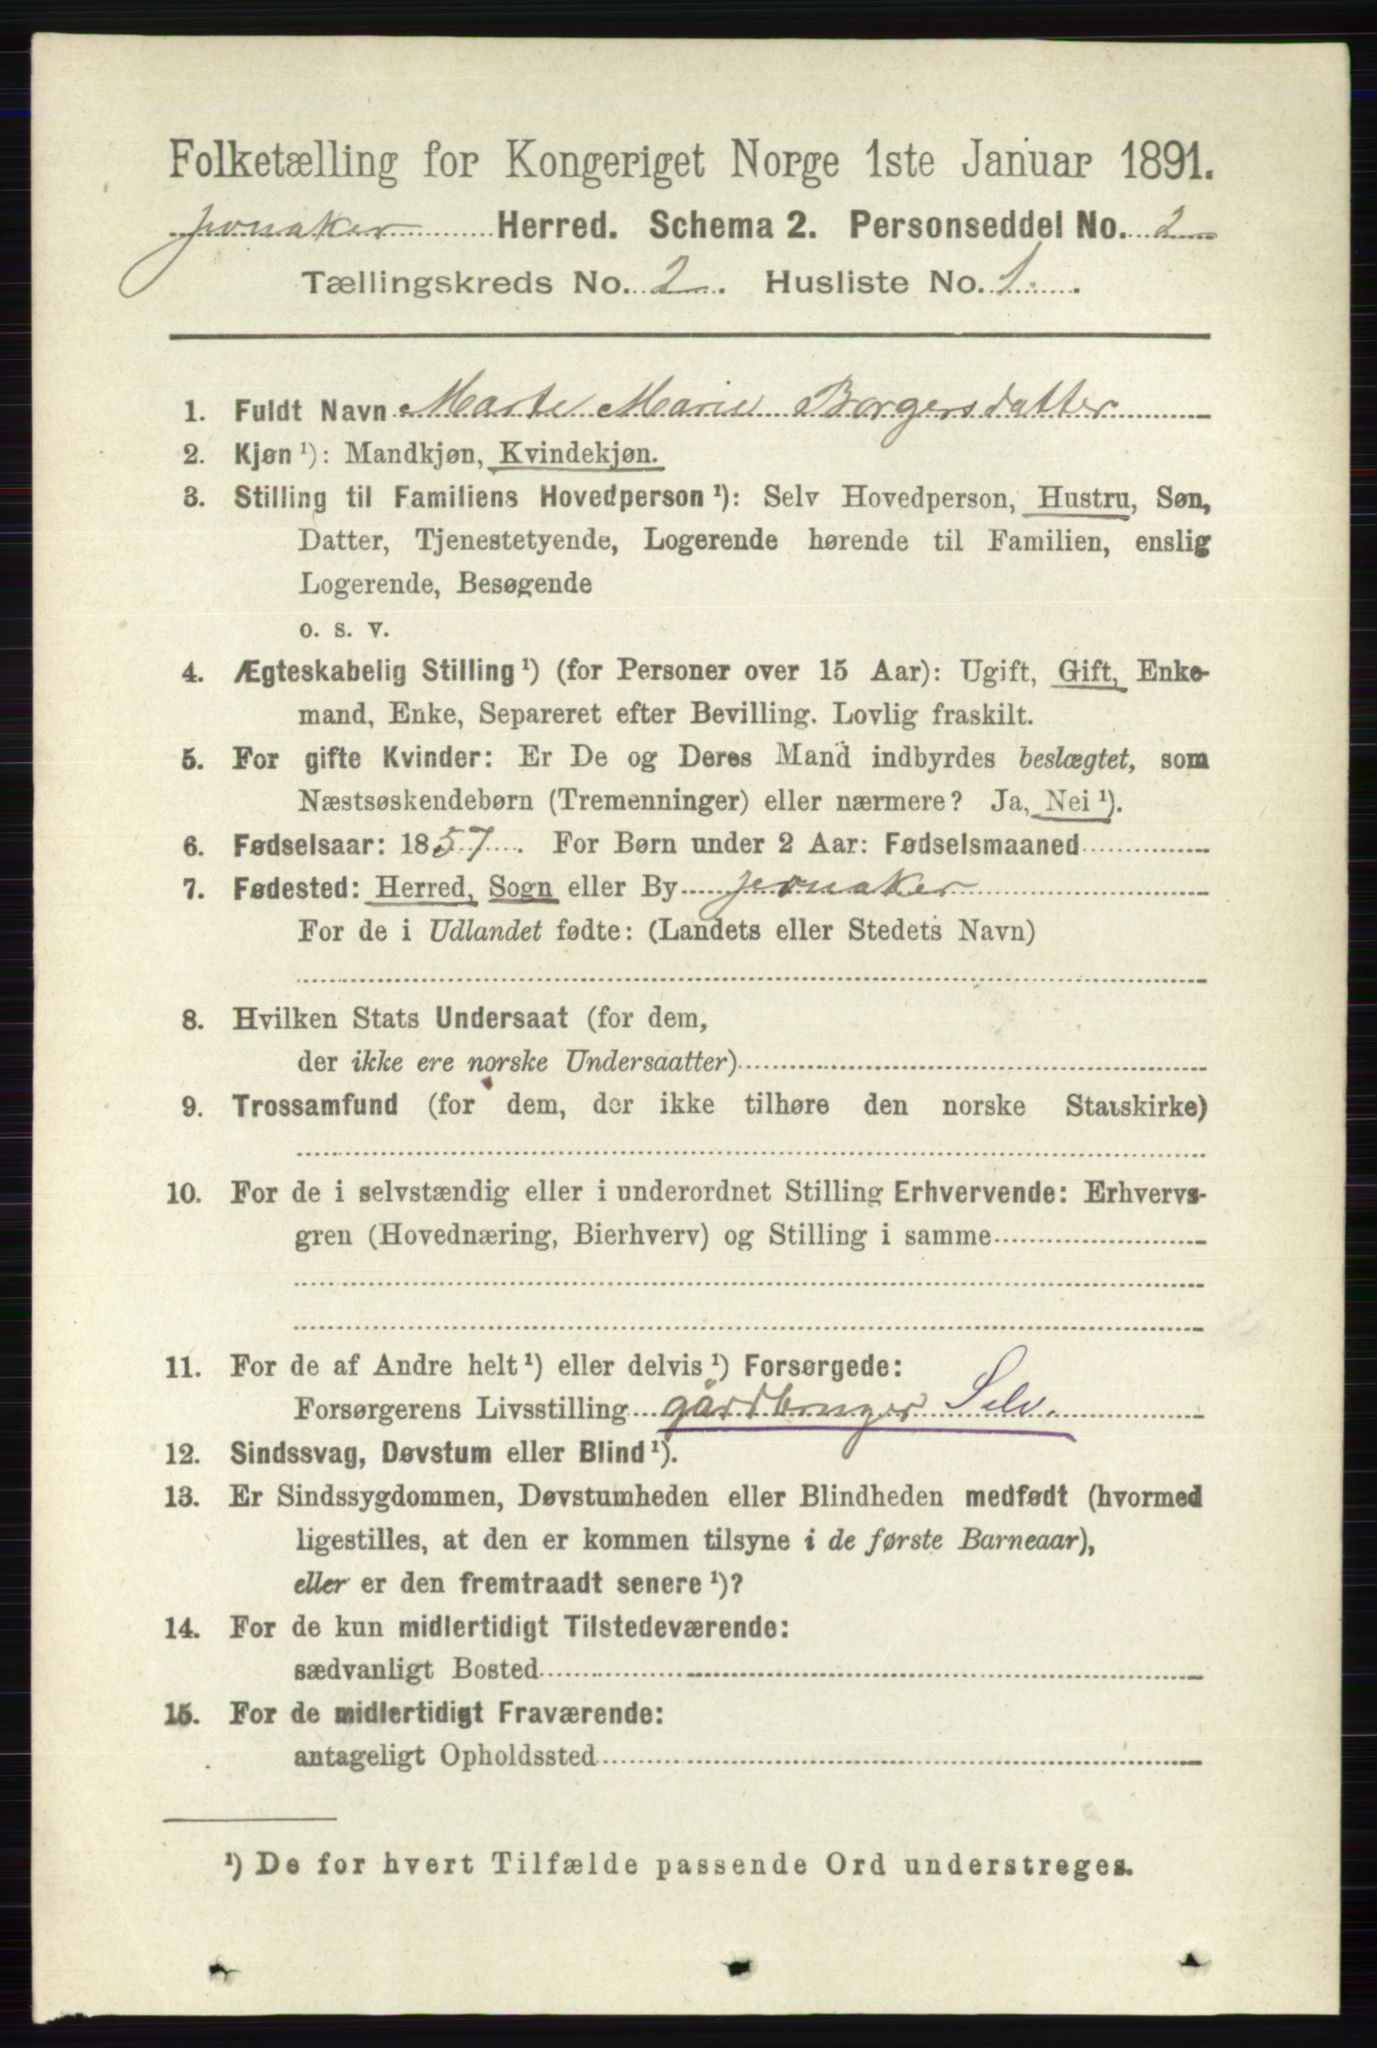 Folketælling for Kongeriget Norge 1ste Januar 1891.
Jevnaker Herred. Schema 2. Personseddel No. 2
Tællingskreds No. 2. Husliste No. 1.
1. Fuldt Navn Marte Marie Borgersdatter
2. Kjøn ¹): Mandkjøn, Kvindekjøn.
3. Stilling til Familiens Hovedperson ¹): Selv Hovedperson, Hustru, Søn,
Datter, Tjenestetyende, Logerende hørende til Familien, enslig
Logerende, Besøgende
o. s. v.
4. Ægteskabelig Stilling ¹) (for Personer over 15 Aar): Ugift, Gift, Enke-
mand, Enke, Separeret efter Bevilling. Lovlig fraskilt.
5. For gifte Kvinder: Er De og Deres Mand indbyrdes beslægtet, som
Næstsøskendebørn (Tremenninger) eller nærmere? Ja, Nei ¹).
6. Fødselsaar: 1857. For Børn under 2 Aar: Fødselsmaaned
7. Fødested: Herred, Sogn eller By Jevnaker
For de i Udlandet fødte: (Landets eller Stedets Navn)
8. Hvilken Stats Undersaat (for dem,
der ikke ere norske Undersaatter)
9. Trossamfund (for dem, der ikke tilhøre den norske Statskirke)
10. For de i selvstændig eller i underordnet Stilling Erhvervende: Erhvervs-
gren (Hovednæring, Bierhverv) og Stilling i samme
11. For de af Andre helt ¹) eller delvis ¹) Forsørgede:
Forsørgerens Livsstilling gårdbruger Selv.
12. Sindssvag, Døvstum eller Blind ¹).
13. Er Sindssygdommen, Døvstumheden eller Blindheden medfødt (hvormed
ligestilles, at den er kommen tilsyne i de første Barneaar),
eller er den fremtraadt senere ¹)?
14. For de kun midlertidigt Tilstedeværende:
sædvanligt Bosted
15. For de midlertidigt Fraværende:
antageligt Opholdssted
¹) De for hvert Tilfælde passende Ord understreges.